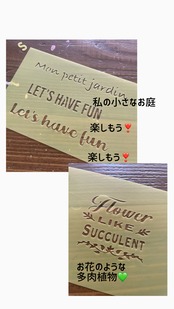 Mon petit jardin
私の小さなお庭❣️
LET'S HAVE FUN
楽しもう❣️
Let's have fun
楽しもう❣️
Flower
LIKE
SUCCULENT
お花のような
多肉植物💚